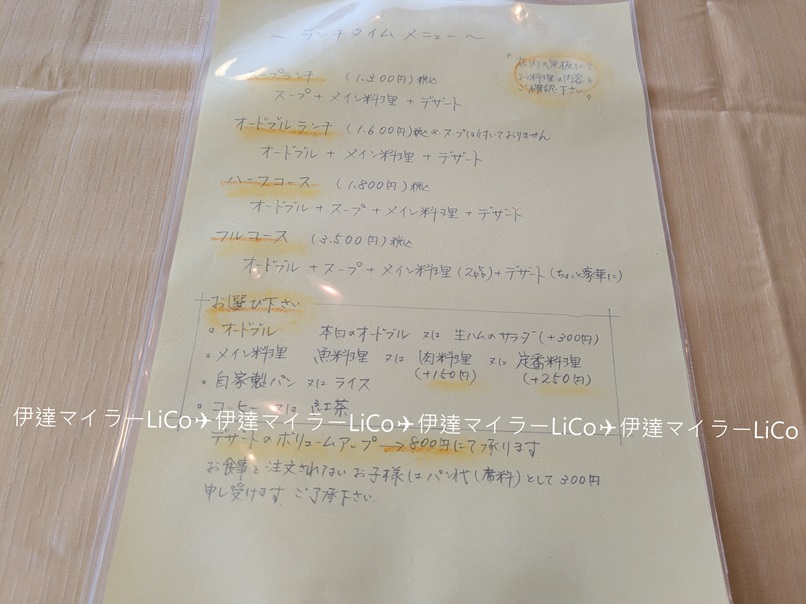 ～ ランチタイム メニュー ～
"店内の黒板にて
お料理の内容を
ご確認下さい"
スープランチ (1.300円)税込
スープ + メイン料理 + デザート
オードブルランチ (1.600円)税込 ※スープは付いておりません
オードブル + メイン料理 + デザート
ハーフコース (1.800円)税込
オードブル + スープ + メイン料理 + デザート
フルコース (3.500円)税込
オードブル + スープ + メイン料理(2品) + デザート(ちょっと豪華に)
お選び下さい
• オードブル 本日のオードブル 又は 生ハムのサラダ(+300円)
• メイン料理 魚料理 又は 肉料理 又は 定番料理
(+150円) (+250円)
• 自家製パン 又は ライス
• コーヒー 又は 紅茶
伊達マイラーLiCo✈伊達マイラーLiCo✈伊達マイラーLiCo✈伊達マイラーLiCo
デザートのボリュームアップ → 800円にて承ります
お食事を注文されないお子様はパン代(席料)として300円
申し受けます ご了承下さい